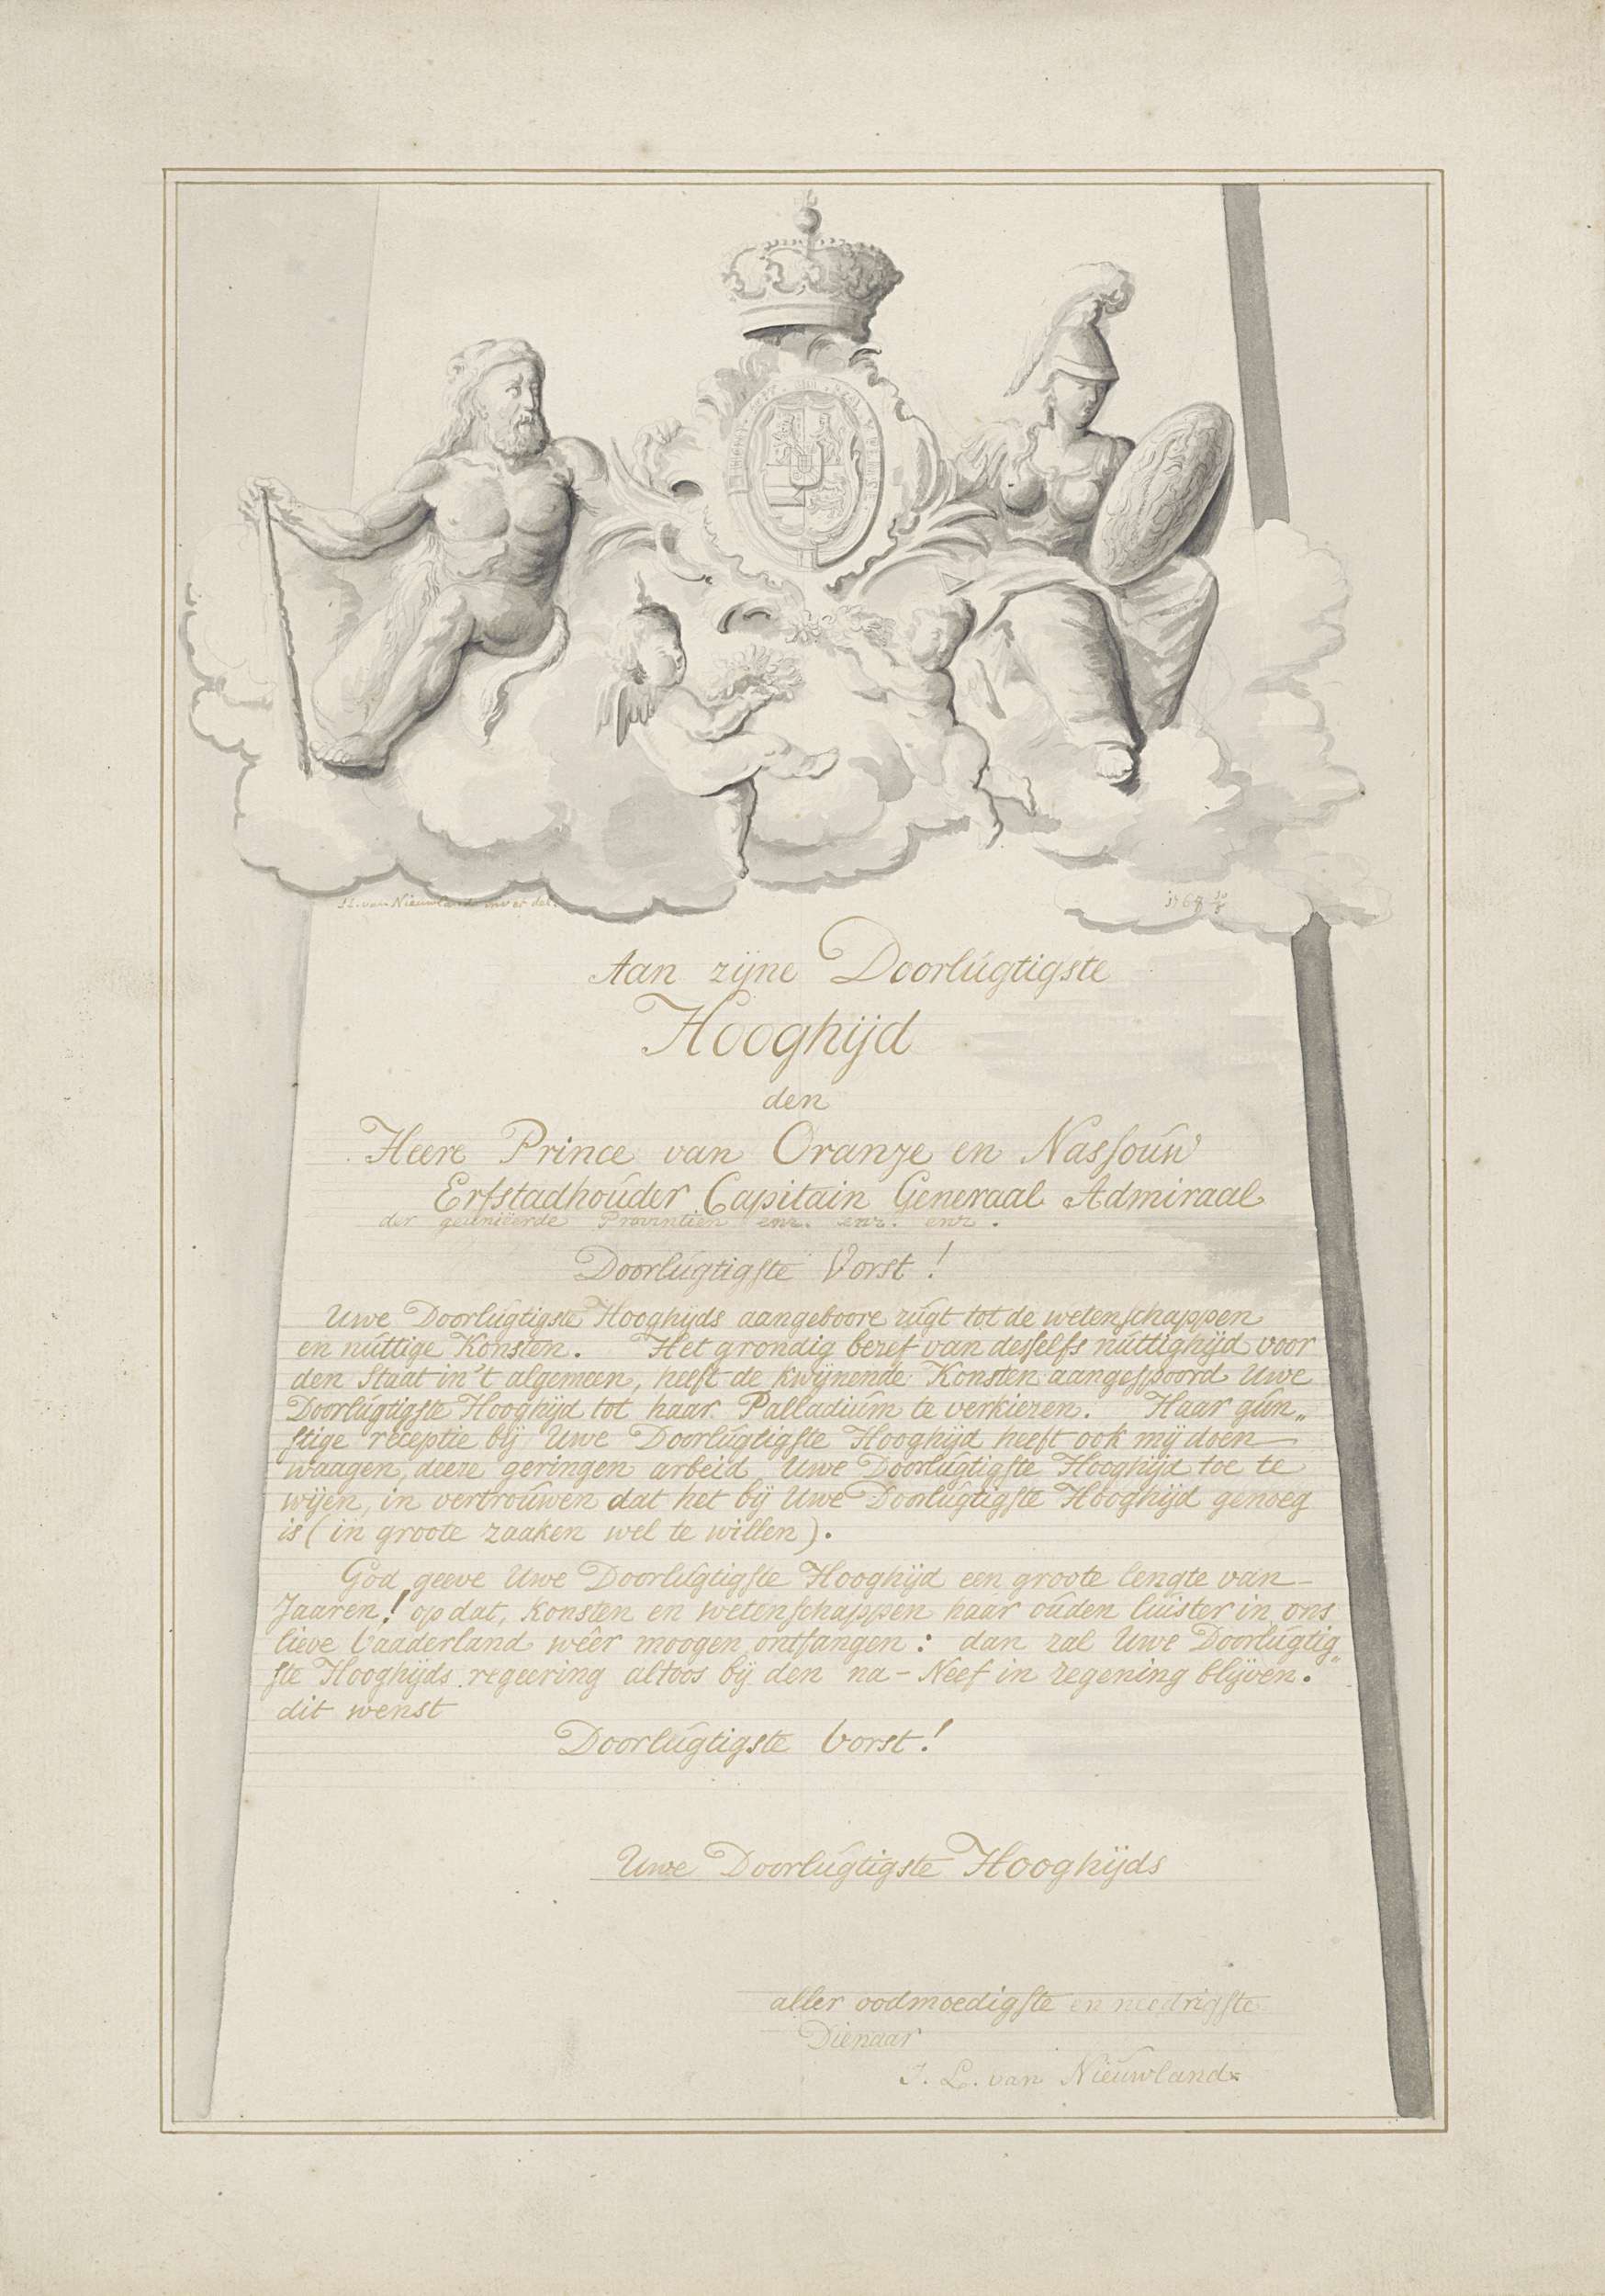 J.L. van Nieuwland inv et del.
1768 30/8
Aan zijne Doorlúgtigste
Hooghijd
den
Heere Prince van Oranje en Nasſoúw
Erfstadhoúder Capitain Generaal Admiraal
der geúniëerde Provintien enz. enz. enz.
Doorlúgtigſte Vorst!
Uwe Doorlúgtigste Hooghijds aangeboore zúgt tot de wetenſchappen
en núttige Konsten. Het grondig bezef van desſelfs núttighijd voor
den Staat in't algemeen, heeft de kwijnende Konsten aangeſpoord Uwe
Doorlúgtigſte Hooghijd tot haar Palladiúm te verkiezen. Haar gún„
ſtige receptie bij Uwe Doorlúgtigſte Hooghijd heeft ook mij doen
waagen, deeze geringen arbeid Uwe Doorlúgtigſte Hooghijd toe te
wijen, in vertroúwen dat het bij Uwe Doorlúgtigſte Hooghijd genoeg
is (in groote zaaken wel te willen).
God geeve Uwe Doorlúgtigſte Hooghijd een groote lengte van
Jaaren! op dat, Konsten en wetenſchappen haar oúden lúister in ons
lieve Vaaderland wêêr moogen ontfangen: dan zal Uwe Doorlúgtig„
ſte Hooghijds regeering altoos bij den na-Neef in zegening blijven.
dit wenst
Doorlúgtigste Vorst!
Uwe Doorlúgtigste Hooghijds
aller oodmoedigſte en needrigſte
Dienaar
J. L. van Nieúwland